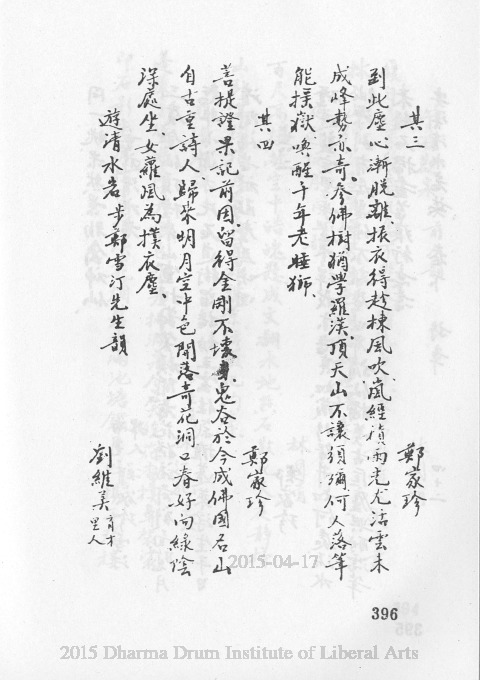 其三
鄭家珍
到此塵心漸脫離振衣得趁棟風吹嵐經積雨光尤活雲未
成峰勢亦奇參佛樹猶學羅漢頂天山不讓須彌何人落筆
能撲嶽喚醒千年老睡獅
其四
鄭家珍
菩提證果記前因留得金剛不壞身鬼谷於今成佛國名山
自古重詩人歸來明月空中色開落奇花洞口春好向綠陰
深處坐女蘿風為撲衣塵
遊清水岩步鄭雪汀先生韻
劉維美 育才里人
2015-04-17
396
2015 Dharma Drum Institute of Liberal Arts